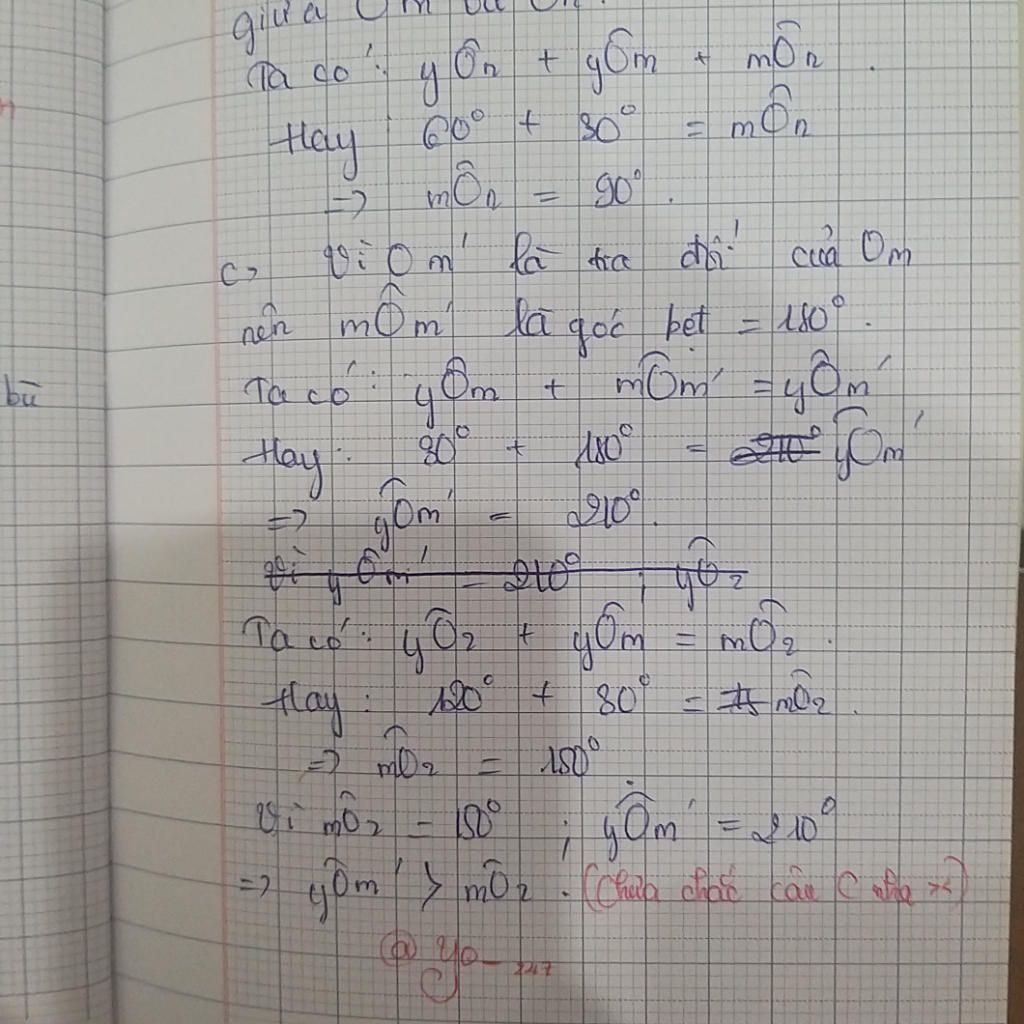 giữa Om và On.
Ta có: yÔn + yÔm + mÔn.
Hay 60° + 30° = mÔn
=> mÔn = 90°.
c> Vì Om' là tia đối của Om
nên mÔm' là góc bẹt = 180°.
bù
Ta có: yÔm + mÔm' = yÔm'
Hay: 30° + 180° = 210° yÔm'
=> yÔm' = 210°.
Vì yÔm' = 210° ; yÔz
Ta có: yÔz + yÔm = mÔz.
Hay: 120° + 30° = mÔz.
=> mÔz = 150°
Vì mÔz = 150° ; yÔm' = 210°
=> yÔm' > mÔz. (Chưa chắc câu C nha ><)
@ yo_247